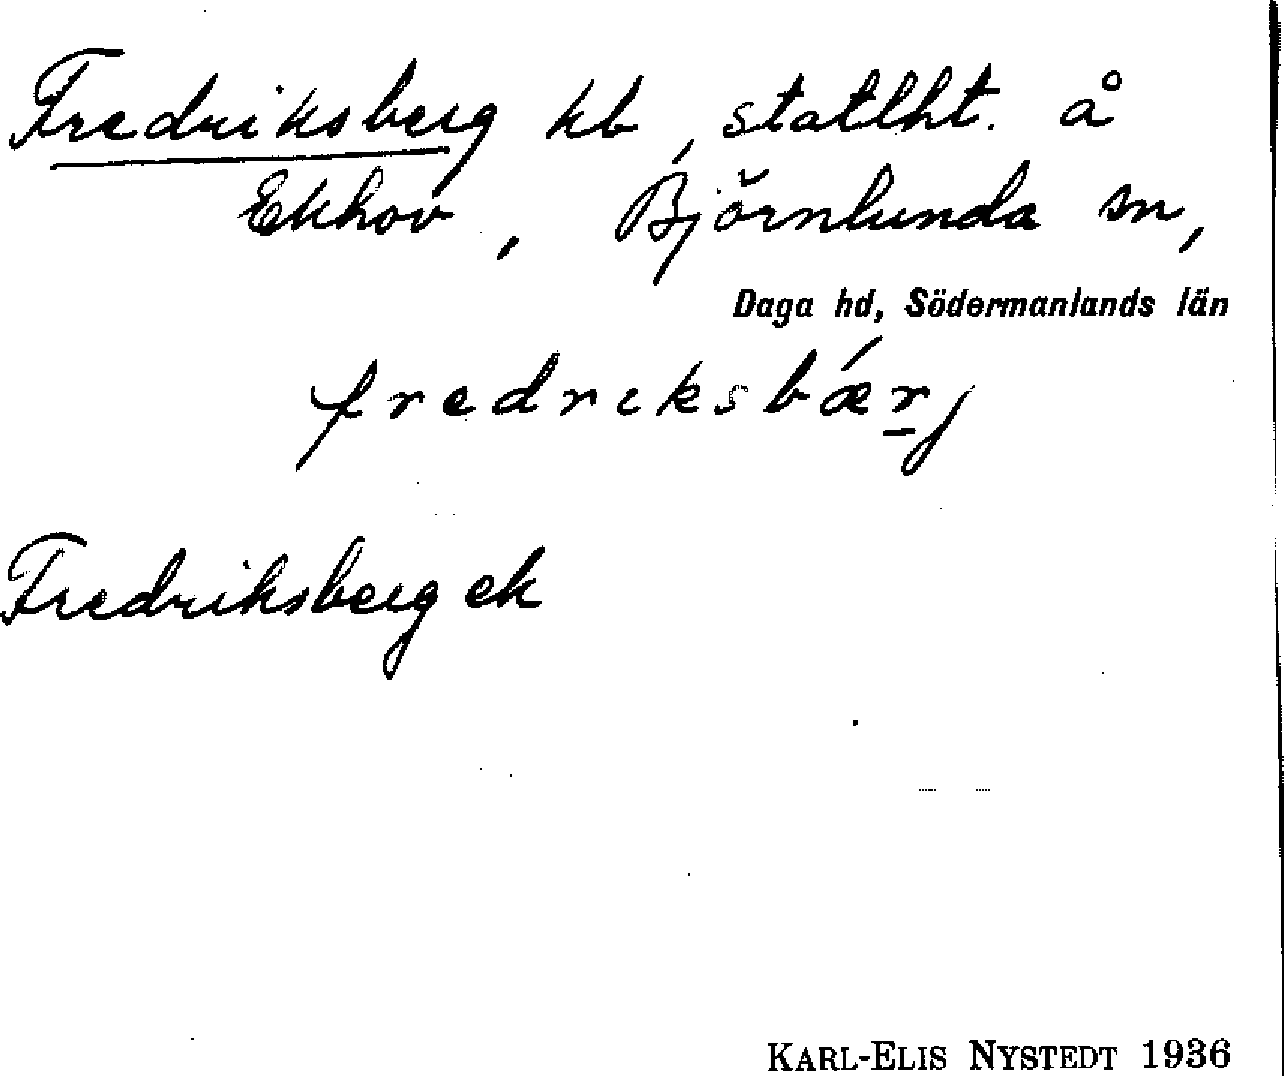 Fredriksberg kb, statlht. å
Ekhov, Björnlunda sn,
Daga hd, Södermanlands län
fredriksbǽr̲j
Fredriksberg ek
KARL-ELIS NYSTEDT 1936